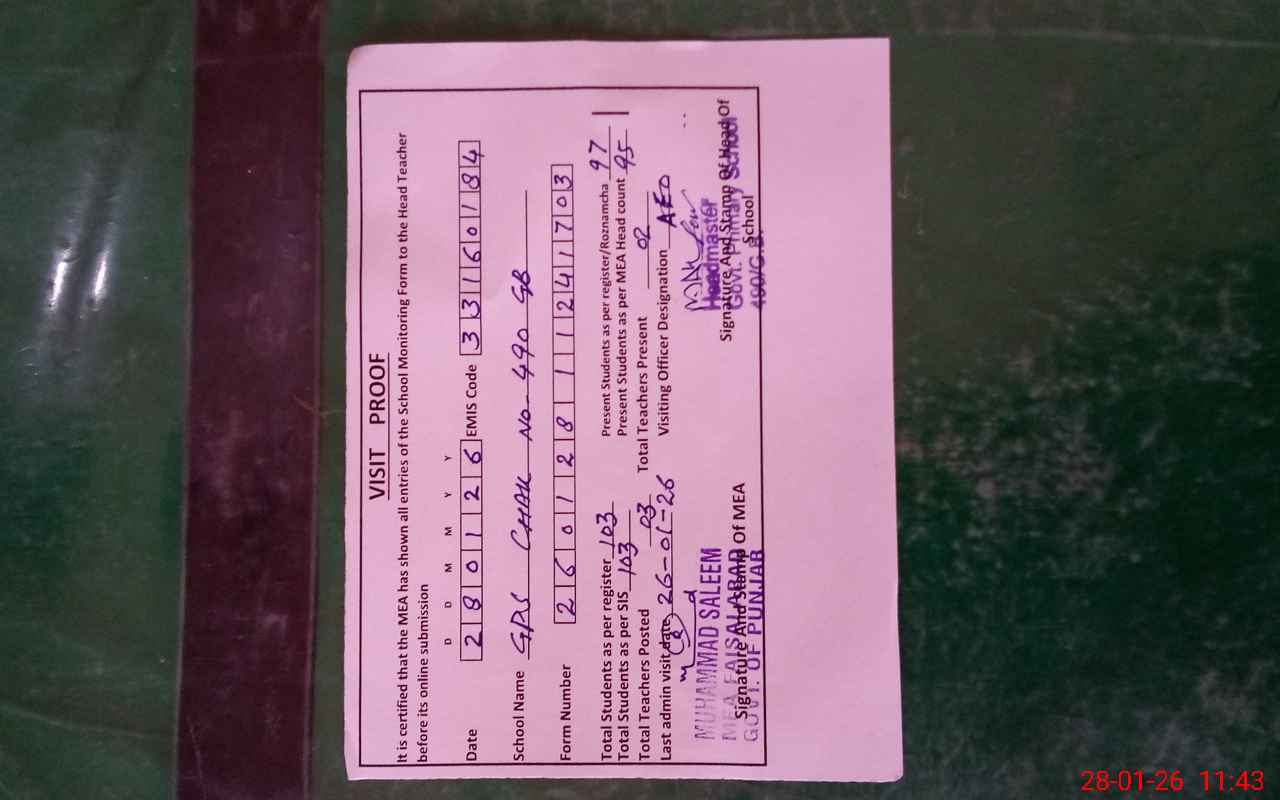 VISIT PROOF
It is certified that the MEA has shown all entries of the School Monitoring Form to the Head Teacher
before its online submission
D D M M Y Y
Date 280126 EMIS Code 33160184
School Name GPS CHAK NO 490 GB
Form Number 26012811241703
Total Students as per register 103 Present Students as per register/Roznamcha 97
Total Students as per SIS 103 Present Students as per MEA Head count 95
Total Teachers Posted 03 Total Teachers Present 02
Last admin visit date 26-01-26 Visiting Officer Designation AEO
MUHAMMAD SALEEM
MEA FAISALABAD
GOVT. OF PUNJAB
Signature And Stamp Of MEA
Headmaster
Govt. Primary School
490/G.B.
Signature And Stamp Of Head Of
School
28-01-26 11:43